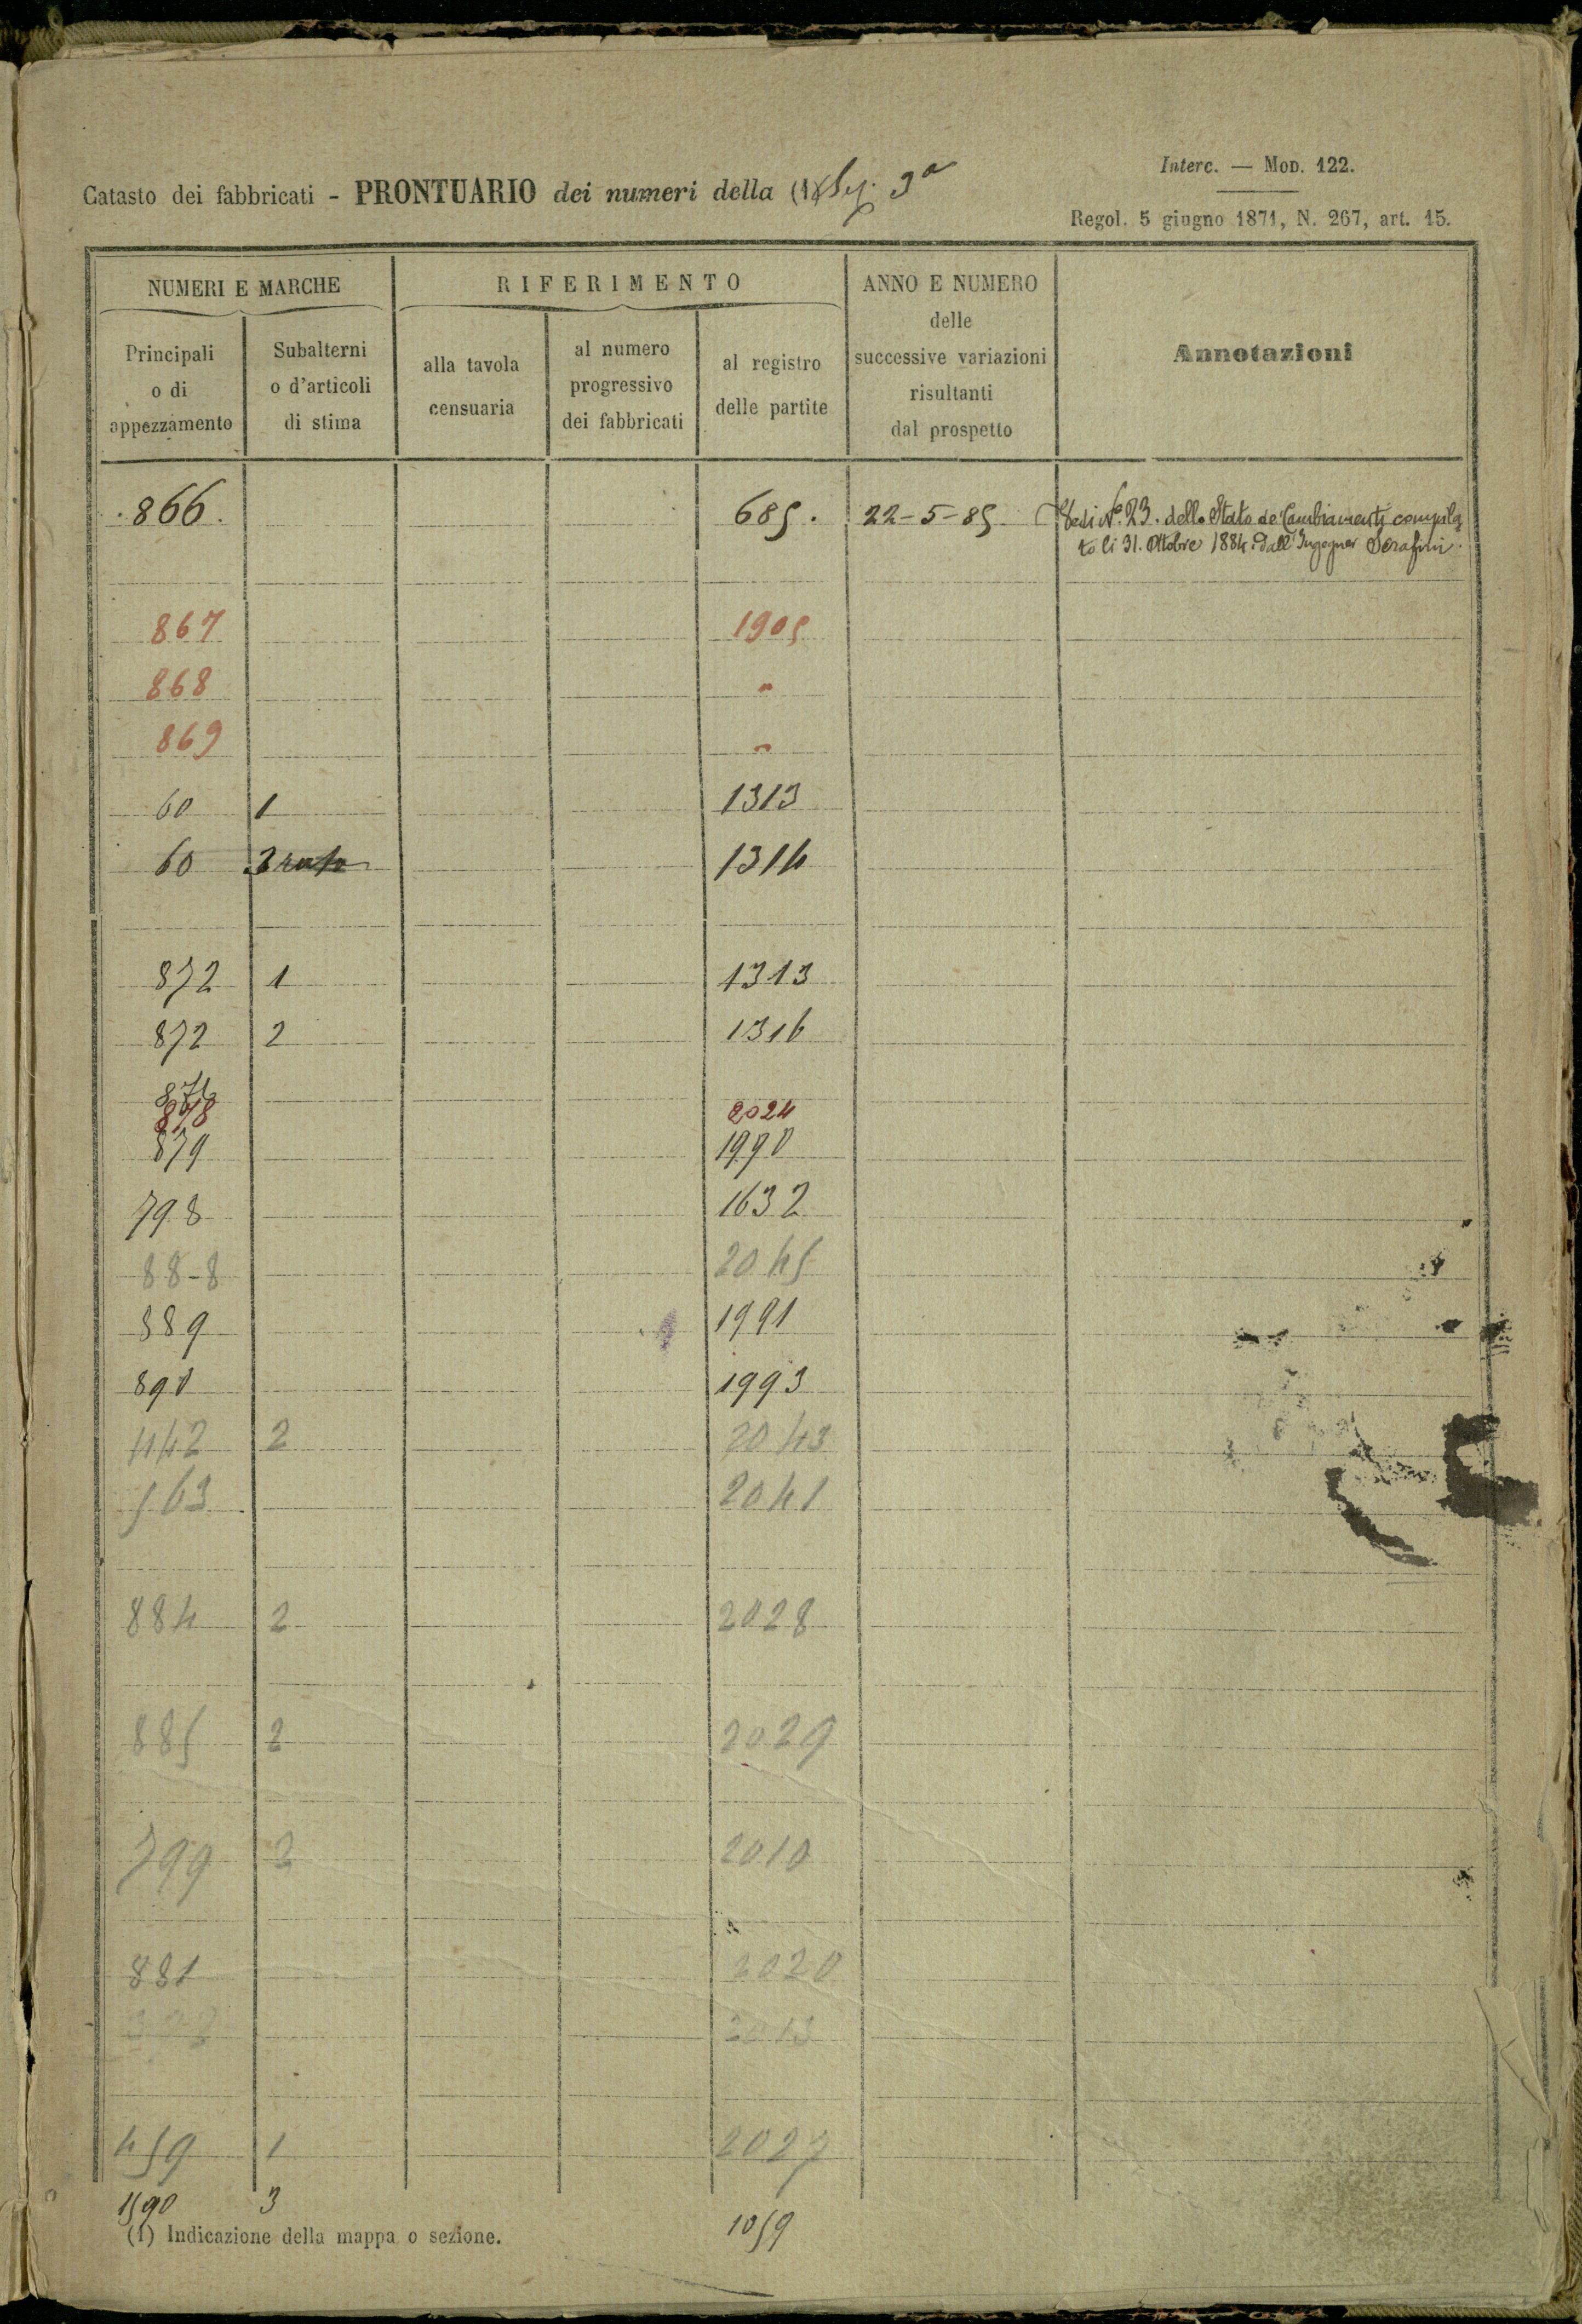 Interc. — Mod. 122.
Catasto dei fabbricati - PRONTUARIO dei numeri della (1) Sez. 3ª
Regol. 5 giugno 1871, N. 267, art. 15.
NUMERI E MARCHE
RIFERIMENTO
ANNO E NUMERO
delle
successive variazioni
risultanti
dal prospetto
Annotazioni
Principali
o di
appezzamento
Subalterni
o d'articoli
di stima
alla tavola
censuaria
al numero
progressivo
dei fabbricati
al registro
delle partite
866. 685. 22-5-85 Vedi Nº 23. dello Stato de' Cambiamenti compila
to li 31. Ottobre 1884 dall'Ingegner Serafini.
867 1905
868 "
869 "
60 1 1313
60 1314
872 1 1313
872 2 1316
876
878 2024
879 1990
798 1632
88-8 2045
889 1991
890 1993
442 2 2043
563 2041
884 2 2028
885 2 2029
799 2 2010
881 2020
2013
459 1 2027
1590 3 1059
(1) Indicazione della mappa o sezione.